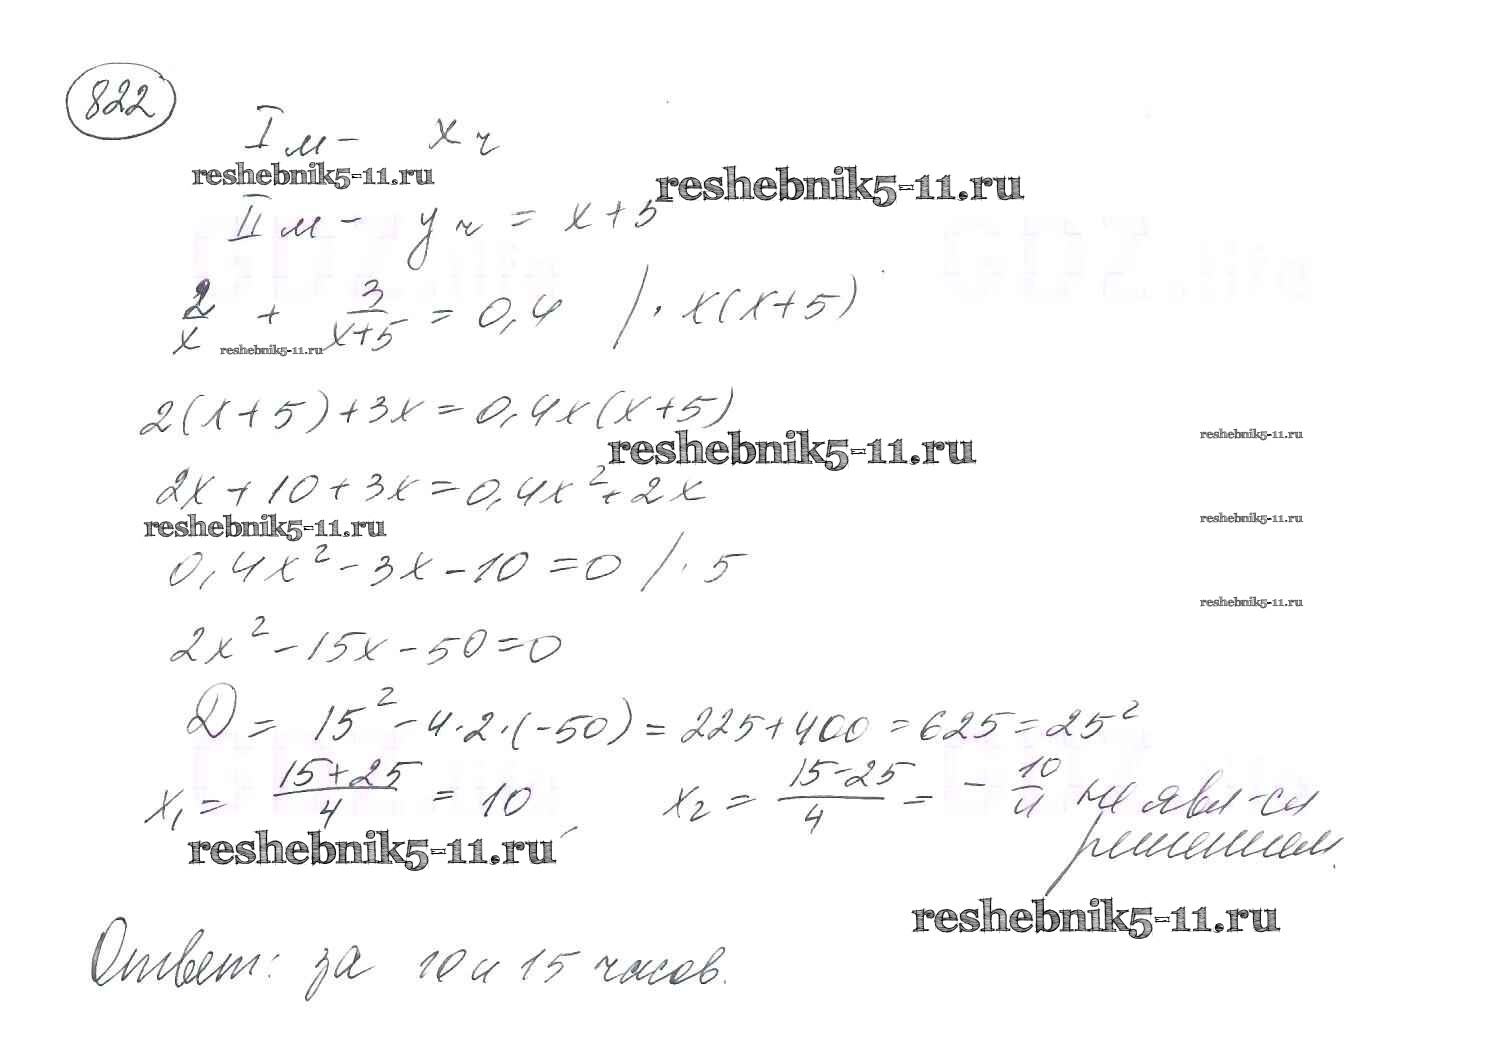 822
I м - x ч
reshebnik5-11.ru
reshebnik5-11.ru
II м - y ч = x + 5
2/x + 3/(x+5) = 0,4 / · x(x+5)
reshebnik5-11.ru
2(x+5)+3x=0,4x(x+5)
reshebnik5-11.ru
reshebnik5-11.ru
2x+10+3x=0,4x²+2x
reshebnik5-11.ru
reshebnik5-11.ru
0,4x²-3x-10=0 / · 5
reshebnik5-11.ru
2x²-15x-50=0
D = 15²-4·2·(-50) = 225+400 = 625 = 25²
x₁ = (15+25)/4 = 10 x₂ = (15-25)/4 = - 10/4 не явл-ся
решением.
reshebnik5-11.ru
reshebnik5-11.ru
Ответ: за 10 и 15 часов.